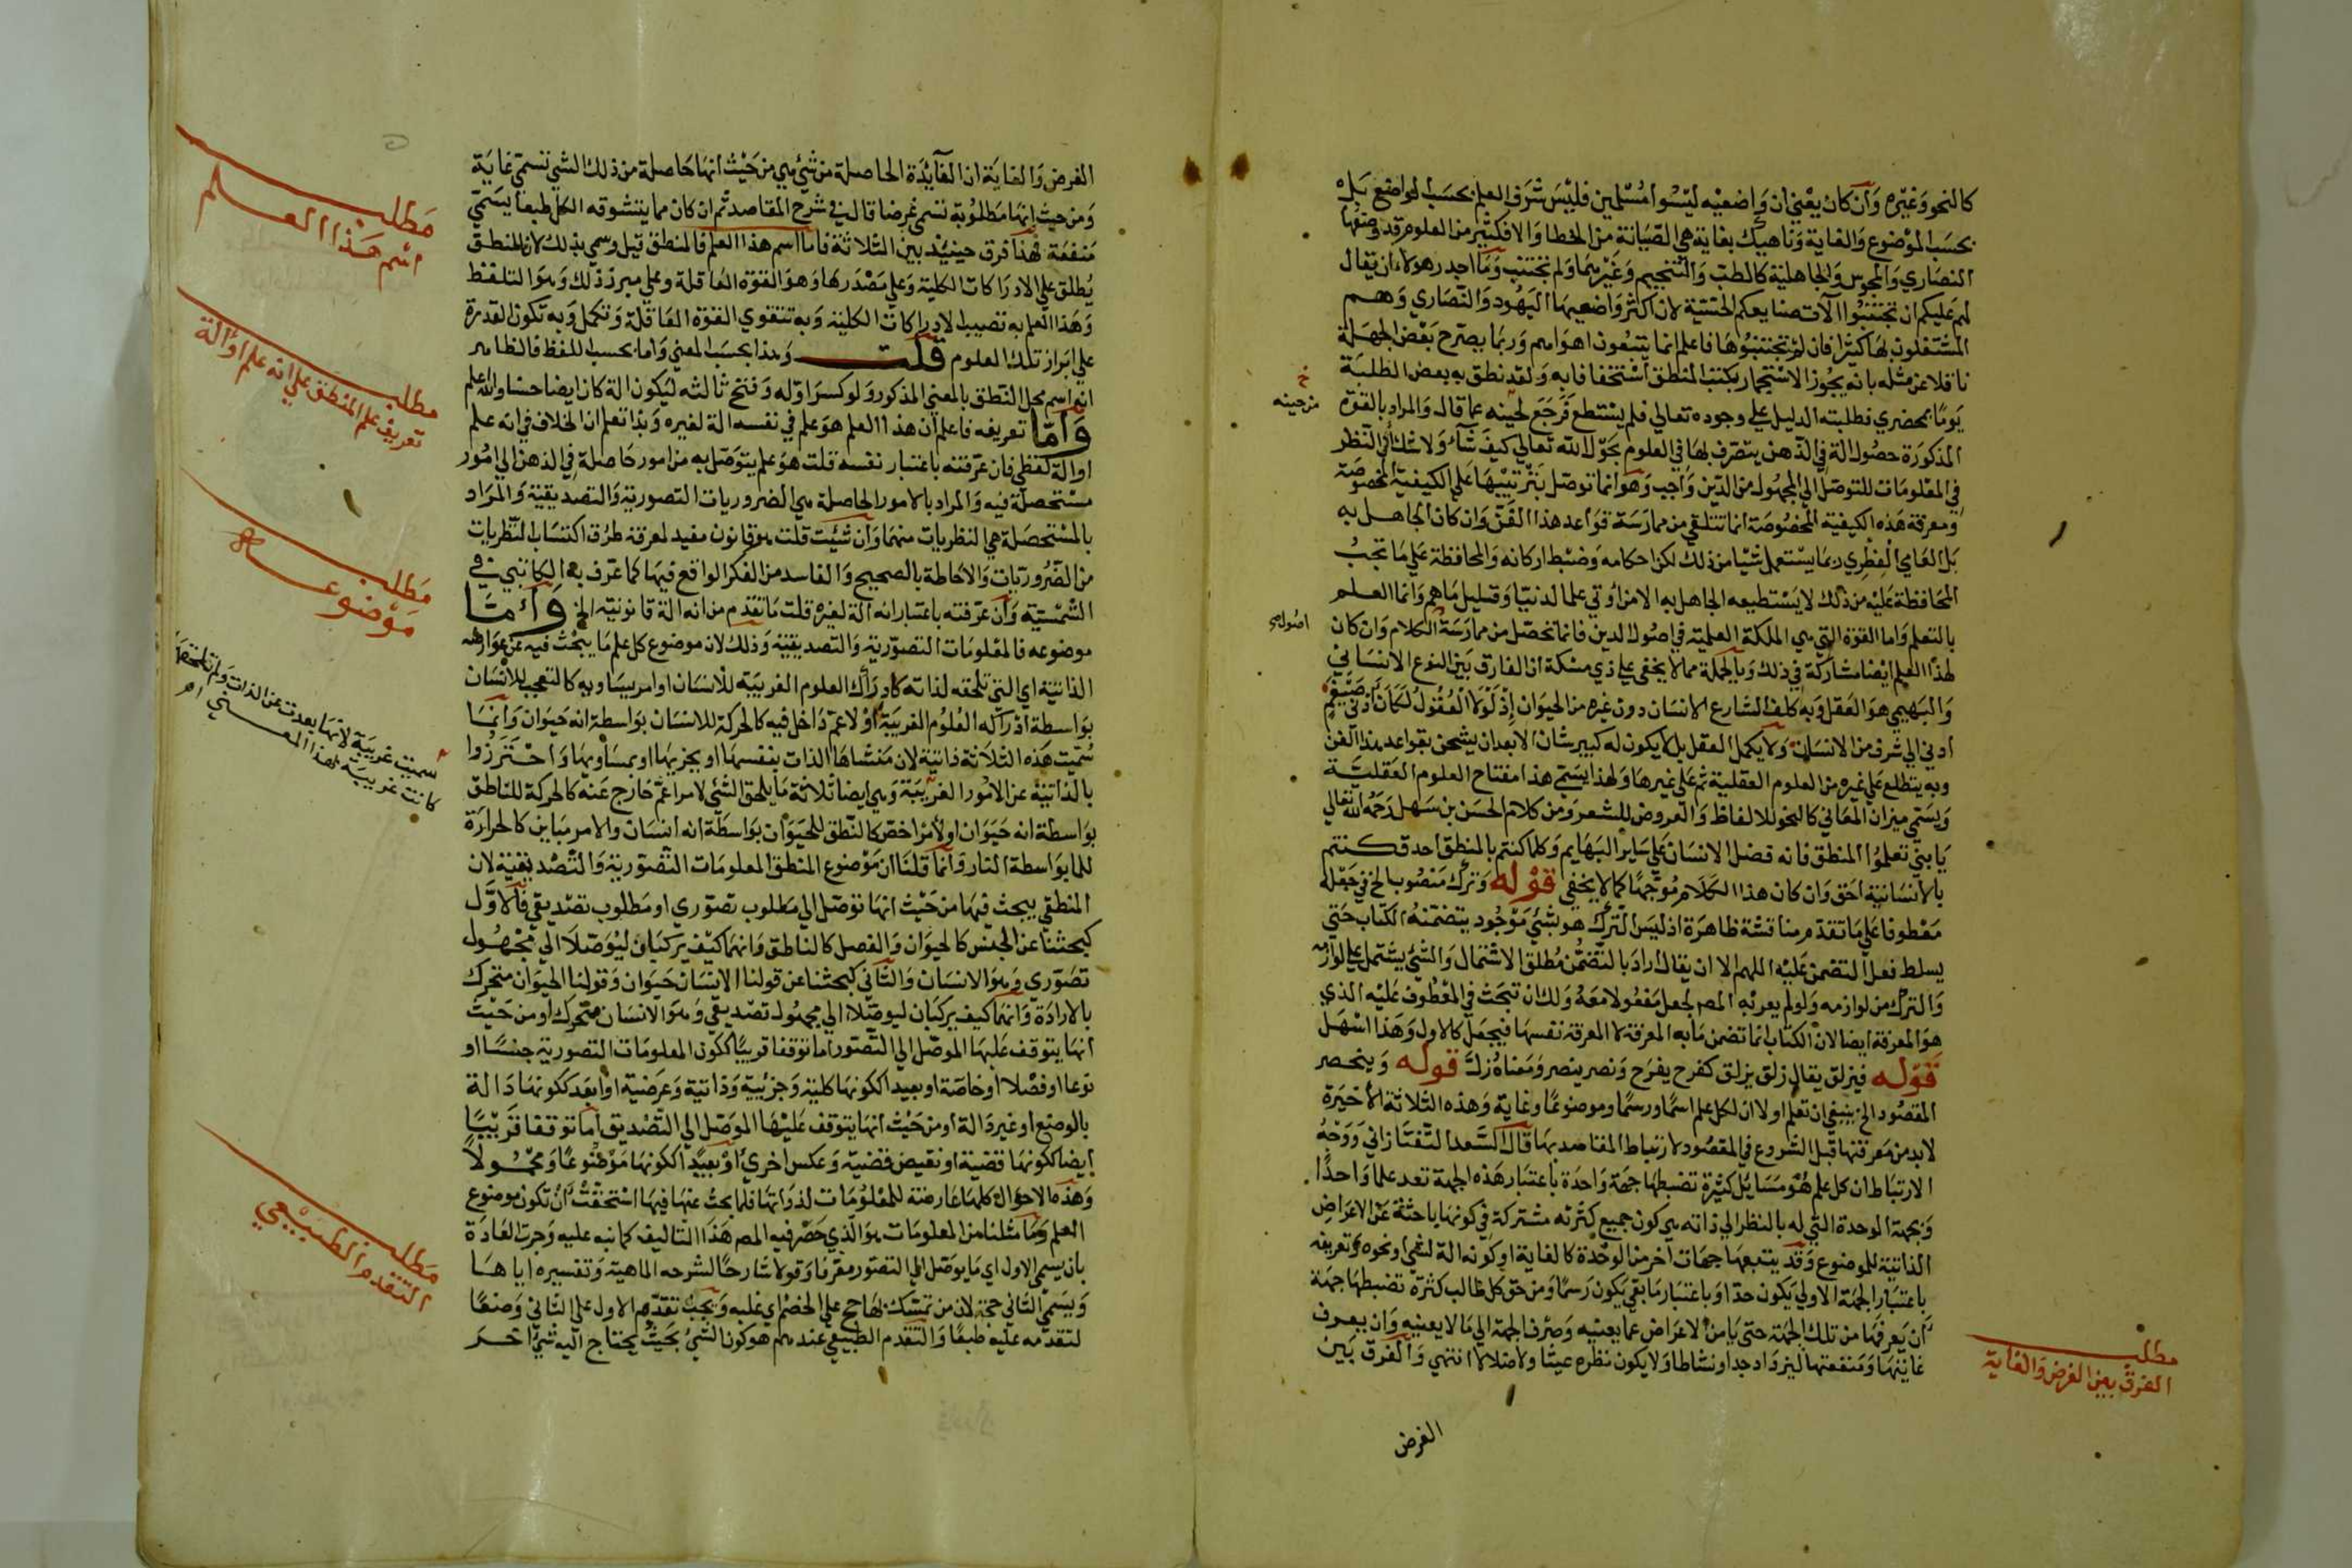 كالنحو وغيره وان كان يعني ان واضعيه ليسوا مسلمين فليس شرف العلم بحسب الواضع بل
بحسب الموضوع والغاية وناهيك بغاية هي الصيانة من الخطا والا فكثير من العلوم قد وضعها
النصاري والمجوس والجاهلية كالطب والتنجيم وغيرهما ولم تجتنب وما اجدر هولاء ان يقال
لهم عليكم ان تجتنبوا آلات صنايعكم الحسية لان اكثر واضعيها اليهود والنصاري وهم
المشتغلون بها كثيرا فان لم تجتنبوها فاعلم انما يتبعون اهواءهم وربما يصرح بعض الجهلة
ناقلا عن مثله بانه يجوز الاستجمار بكتب المنطق استخفافا به ولقد نطق به بعض الطلبة
يوما بحضرتي فطلبته الدليل علي وجوده تعالي فلم يستطع فرجع لحينه عما قال والمراد بالقوة
المذكورة حصول الة في الذهن يتصرف بها في العلوم بحول الله تعالي كيف شاء ولا شك ان النظر
في المعلومات للتوصل الي المجهول من الدين واجب وهو انما توصل بترتيبها علي الكيفية المخصوصة
ومعرفة هذه الكيفية المخصوصة انما تتلقي من ممارسة قواعد هذا الفن وان كان الجاهل به
بل العامي الفطري ربما يستعمل شيا من ذلك لكن احكامه وضبط اركانه والمحافظة علي ما تجب
المحافظة عليه من ذلك لا يستطيعه الجاهل به الا من اوتي علما لدنيا وقليل ما هم وانما العلم
بالتعلم واما القوة التي هي الملكة العلمية في اصول الدين فانما تحصل من ممارسة الكلام وان كان
لهذا العلم ايضا مشاركة في ذلك وبالجملة مما لا يخفي علي ذي مسكة ان الفارق بين النوع الانساني
والبهيمي هو العقل وبه كلف الشارع الانسان دون غيره من الحيوان اذ لولا العقول لكان ادني ضيغم
ادني الي شرف من الانسان ولا يكمل العقل بل لا يكون له كبير شان الا بعد ان يشحن بقواعد هذا الفن
وبه يتطلع علي غيره من العلوم العقلية ثم علي غيرها ولهذا يسمي هذا مفتاح العلوم العقلية
ويسمي ميزان المعاني كالنحو للالفاظ والعروض للشعر ومن كلام الحسن بن سهل رحمه الله تعالي
يا بني تعلموا المنطق فانه فضل الانسان علي ساير البهايم وكلما كنتم بالمنطق احدق كنتم
بالانسانية احق وان كان هذا الكلام موجها كما لا يخفي قوله وترك منصوب الخ في جعله
معطوفا علي ما تقدم مناقشة ظاهرة اذ ليس الترك هو بشئ موجود يتضمنه الكتاب حتي
يسلط فعل التضمن عليه اللهم الا ان يقال اراد بالتضمن مطلق الاشتمال والشئ يشتمل علي لوازمه
والترك من لوازمه ولو لم يعربه المص لجعل مفعولا معه ولك ان تبحث في المعطوف عليه الذي
هو المعرفة ايضا لان الكتاب انما تضمن ما به المعرفة لا المعرفة نفسها فيجعل كالاول وهذا اسهل
قوله فيزلق يقال زلق يزلق كفرح يفرح ونصر ينصر ومعناه زل قوله وينحصر
المقصود الخ ينبغي ان تعلم اولا ان لكل علم اسما ورسما وموضوعا وغاية وهذه الثلاثة الاخيرة
لابد من معرفتها قبل الشروع في المقصود لارتباط المقاصد بها قال السعد التفتازاني ووجه
الارتباط ان كل علم هو مسايل كثيرة تضبطها جهة واحدة باعتبار هذه الجهة تعد علما واحدا
وبجهة الوحدة التي له بالنظر الي ذاته هي كون جميع كثرته مشتركة في كونها باحثة عن الاعراض
الذاتية للموضوع وقد يتبعها جهات اخر من الوحدة كالغاية او كونه الة لشئ او نحوه وتعريفه
باعتبار الجهة الاولي يكون حدا وباعتبار ما بقي يكون رسما ومن حق كل طالب كثرة تضبطها جهة
ان يعرفها من تلك الجهة حتي يامن الاعراض عما يعنيه وصرف الجهة الي ما لا يعنيه وان يعرف
غايتها ومنفعتها ليزداد جدا ونشاطا ولا يكون نظره عبثا ولا ضلالا انتهي والفرق بين
الغرض
من حينه
اصولهم
مطلب
الفرق بين الغرض والغاية
الغرض والغاية ان الفآئدة الحاصلة من شئ هي من حيث انها حاصلة من ذلك الشي تسمي غاية
ومن حيث انها مطلوبة تسمي غرضا قال في شرح المقاصد ثم ان كان مما يتشوقه الكل طبعا يسمي
منفعة فهذا فرق حينئذ بين الثلاثة فاما اسم هذا العلم فالمنطق قيل وسمي بذلك لان المنطق
يطلق علي الادراكات الكلية وعلي مصدرها وهو القوة العاقلة وعلي مبرز ذلك وهو التلفظ
وهذا العلم به تصيب الادراكات الكلية وبه تتقوي القوة العاقلة وتكمل وبه تكون القدرة
علي ابراز تلك العلوم قلت وهذا بحسب المعني واما بحسب اللفظ فالظاهر
انه اسم محل النطق بالمعني المذكور ولو كسر اوله وفتح ثالثه ليكون الة كان ايضا حسنا والله اعلم
واما تعريفه فاعلم ان هذا العلم هو علم في نفسه الة لغيره وبذا تعلم ان الخلاف في انه علم
او الة لفظي فان عرفته باعتبار نفسه قلت هو علم يتوصل به من امور حاصلة في الذهن الي امور
مستحصلة فيه والمراد بالامور الحاصلة هي الضروريات التصورية والتصديقية والمراد
بالمستحصلة هي النظريات منهما وان شئت قلت هو قانون مفيد لمعرفة طرق اكتساب النظريات
من الضروريات والاحاطة بالصحيح والفاسد من الفكر الواقع فيها كما عرف به الكاتبي في
الشمسية وان عرفته باعتبار انه آلة لغيره قلت ما تقدم من انه الة قانونية الخ واما
موضوعه فالمعلومات التصورية والتصديقية وذلك لان موضوع كل علم ما يبحث فيه عن عوارضه
الذاتية اي التي تلحقه لذاته كادراك العلوم الغريبة للانسان او امر يساويه كالتعجب للانسان
بواسطة ادراكه العلوم الغريبة او لاعم داخل فيه كالحركة للانسان بواسطة انه حيوان وانما
سميت هذه الثلاثة ذاتية لان منشاها الذات بنفسها او بجزيها او بمساويها واحترزوا
بالذاتية عن الامور الغريبة وهي ايضا ثلاثة ما يلحق الشئ لامر اعم خارج عنه كالحركة للناطق
بواسطة انه حيوان او لامر اخص كالنطق للحيوان بواسطة انه انسان والامر مباين كالحرارة
للما بواسطة النار وانما قلنا ان موضوع المنطق المعلومات التصورية والتصديقية لان
المنطقي يبحث فيها من حيث انها توصل الي مطلوب تصوري او مطلوب تصديقي فالاول
كبحثنا عن الجنس كالحيوان والفصل كالناطق وانهما كيف يركبان ليوصلا الي مجهول
تصوري وهو الانسان والثاني كبحثنا عن قولنا الانسان حيوان وقولنا الحيوان متحرك
بالارادة وانهما كيف يركبان ليوصلا الي مجهول تصديقي وهو الانسان متحرك او من حيث
انها يتوقف عليها الموصل الي التصور اما توقفا قريبا ككون المعلومات التصورية جنسا او
نوعا او فصلا او خاصة او بعيدا ككونها كلية وجزئية وذاتية وعرضية او ابعد ككونها دالة
بالوضع او غير دالة او من حيث انها يتوقف عليها الموصل الي التصديق اما توقفا قريبا
ايضا ككونها قضية او نقيض قضية وعكس اخري او بعيدا ككونها موضوعا ومحمولا
وهذه الاحوال كلها عارضة للمعلومات لذواتها فلما بحث عنها فيها استحقت ان تكون موضوع
العلم وما مثلنا من المعلومات هو الذي حصر فيه المص هذا التاليف كما نبه عليه وجرت العادة
بان يسمي الاول اي ما يوصل الي التصور معرفا وقولا شارحا لشرحه الماهية وتفسيره اياها
ويسمي الثاني حجة لان من تمسك بها حج علي الخصم اي غلبه ويجب تقديم الاول علي الثاني وضعا
لتقدمه عليه طبعا والتقدم الطبيعي عندهم هو كون الشئ بحيث يحتاج اليه شئ اخر
مطلب
اسم هذا العلم
مطلب
تعريف علم المنطق علي انه علم او آلة
مطلب
موضوعه
سميت غريبة لانها بعدت عن الذات ولم تلحقها
كانت غريبة لهذا المعني اهـ
مطلب
التقدم الطبيعي